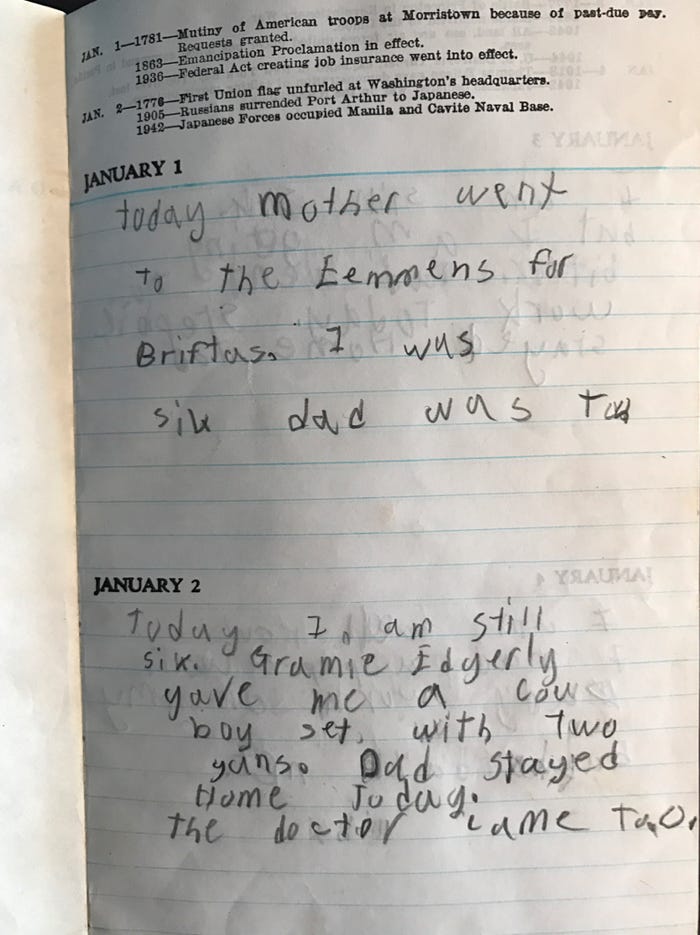 JAN. 1—1781—Mutiny of American troops at Morristown because of past-due pay.
Requests granted.
1863—Emancipation Proclamation in effect.
1936—Federal Act creating job insurance went into effect.
JAN. 2—1776—First Union flag unfurled at Washington's headquarters.
1905—Russians surrendred Port Arthur to Japanese.
1942—Japanese Forces occupied Manila and Cavite Naval Base.
JANUARY 1
today mother went
to the Eemmens for
Briftas. I was
sik dad was too
JANUARY 2
Today I am still
sik. Gramie Edgerly
gave me a cow
boy set, with two
guns. Dad stayed
Home Today.
the doctor came too.